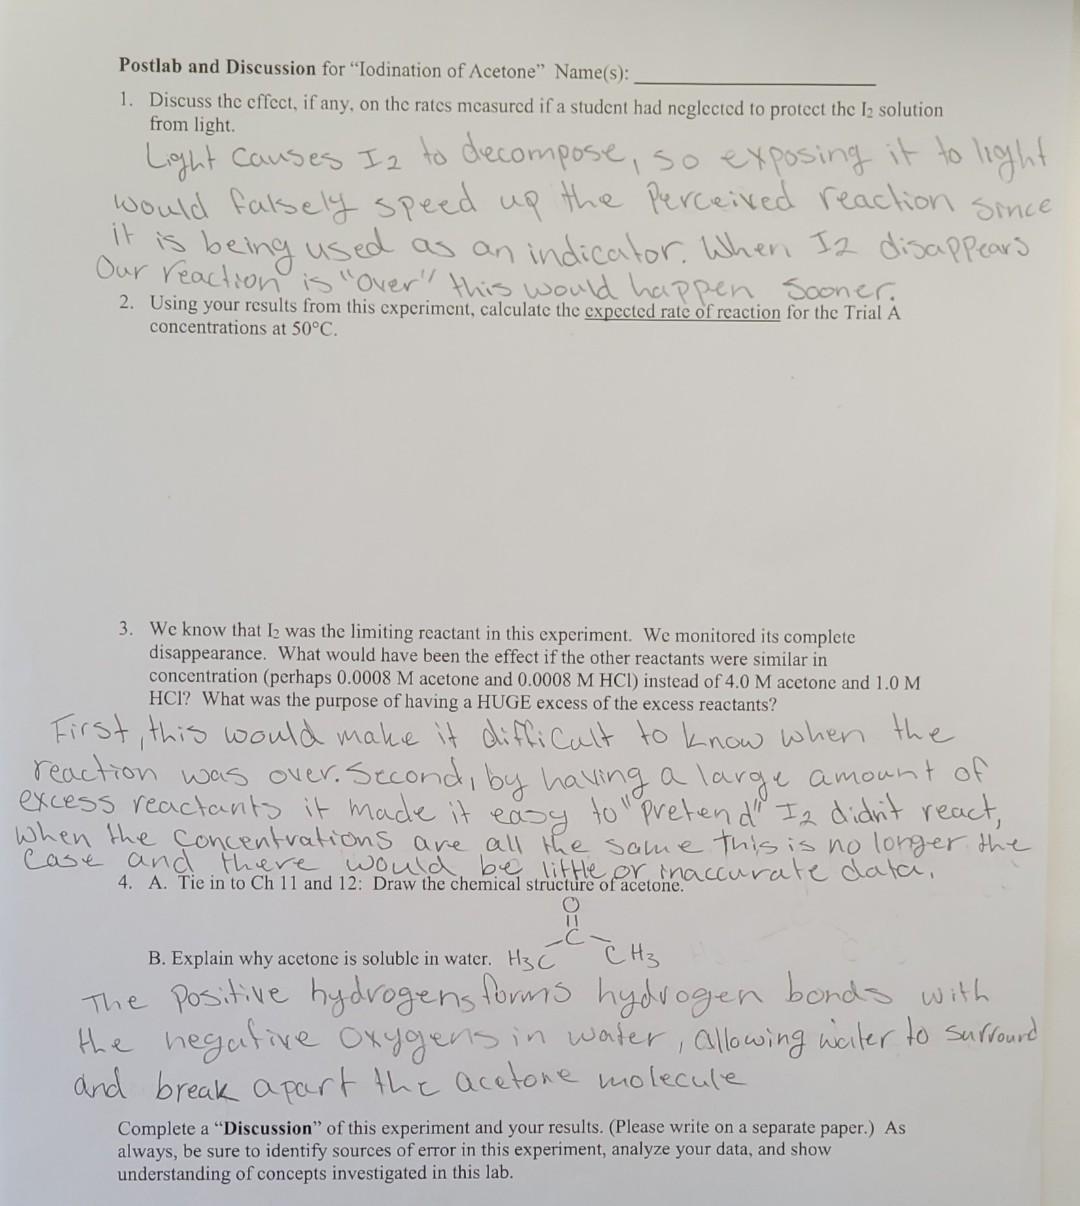 Postlab and Discussion for “Iodination of Acetone” Name(s):
1. Discuss the effect, if any, on the rates measured if a student had neglected to protect the I₂ solution
from light.
Light causes I2 to decompose, so exposing it to light
would falsely speed up the Perceived reaction since
it is being used as an indicator. When I2 disappears
Our reaction is "Over" this would happen Sooner.
2. Using your results from this experiment, calculate the expected rate of reaction for the Trial A
concentrations at 50°C.
3. We know that I₂ was the limiting reactant in this experiment. We monitored its complete
disappearance. What would have been the effect if the other reactants were similar in
concentration (perhaps 0.0008 M acetone and 0.0008 M HCl) instead of 4.0 M acetone and 1.0 M
HCl? What was the purpose of having a HUGE excess of the excess reactants?
First, this would make it difficult to know when the
reaction was over. Second, by having a large amount of
excess reactants it made it easy to "pretend" I2 didn't react,
When the Concentrations are all the same this is no longer the
Case and there would be little or inaccurate data.
4. A. Tie in to Ch 11 and 12: Draw the chemical structure of acetone.
O
C
B. Explain why acetone is soluble in water. H3C CH3
The positive hydrogens forms hydrogen bonds with
the negative oxygens in water, allowing water to surround
and break apart the acetone molecule
Complete a “Discussion” of this experiment and your results. (Please write on a separate paper.) As
always, be sure to identify sources of error in this experiment, analyze your data, and show
understanding of concepts investigated in this lab.